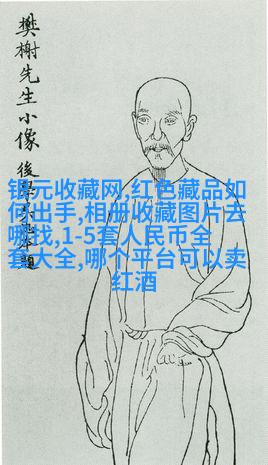 樊榭先生小像
後學題
银元收藏网,红色藏品如
何出手,相册收藏图片去
哪找,1-5套人民币全
套大全,哪个平台可以卖
红酒